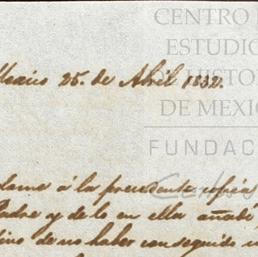 CENTRO
ESTUDIO
DE HISTO
DE MEXI
FUNDAC
Mexico 25. de Abril 1832.
á la precedente copia
Padre y de lo en ella añadi
de no haber conseguido